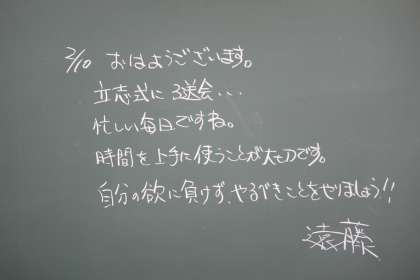 2/10 おはようございます。
立志式に3送会...
忙しい毎日ですね。
時間を上手に使うことが大切です。
自分の欲に負けず、やるべきことをやりましょう!!
遠藤